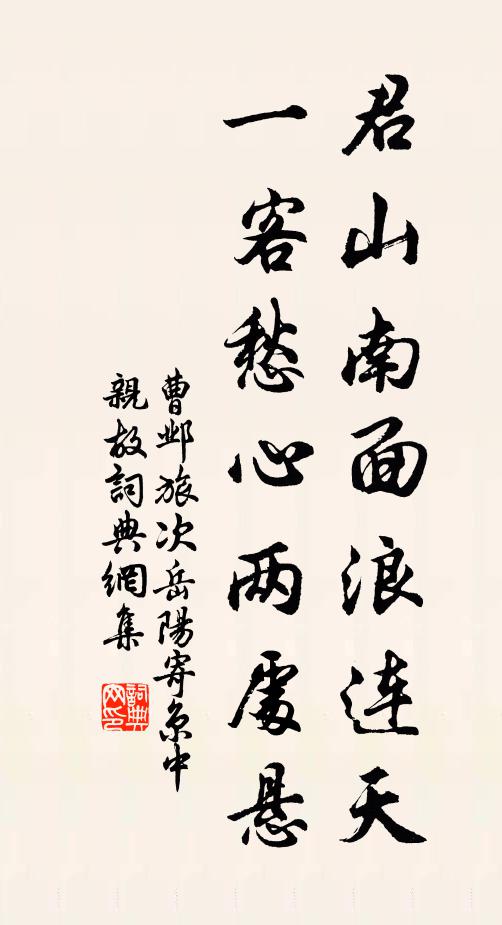 君山南面浪连天
一客愁心两處悬
曹邺旅次岳陽寄京中
親故詞典網集
詞典
网印